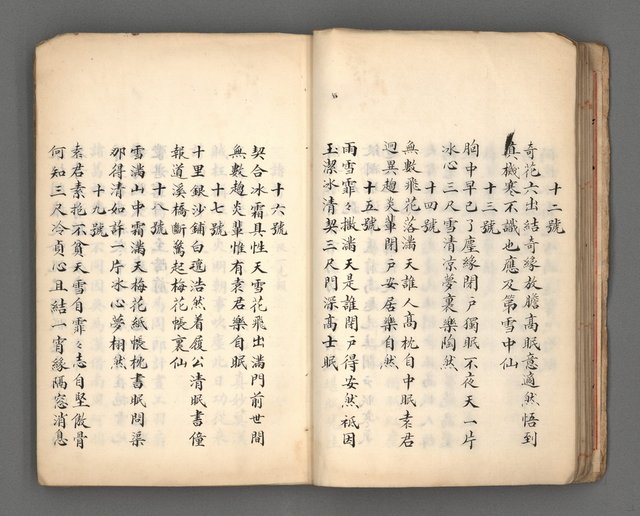 十二號
奇花六出結奇緣放膽高眠意適然悟到
機寒不識也應及第雪中仙
十三號
胸中早已了塵緣閉戶獨眠不夜天一片
冰心三尺雪清涼夢裏樂陶然
十四號
無數飛花落滿天誰人高枕自中眠袁君
迥異趨炎輩閉戶安居樂自然
十五號
雨雪霏々撒滿天是誰閉戶得安然祗因
玉潔冰清契三尺門深高士眠
十六號
契合冰霜具性天雪花飛出滿門前世間
無數趨炎輩惟有袁君樂自眠
十七號
十里銀沙鋪白氊浩然着屐公清眠書僮
報道溪橋斷驚起梅花帳裏仙
十八號
雪滿山中霜滿天梅花紙帳枕書眠問渠
那得清如許一片冰心夢栩然
十九號
袁君素抱不貧天雪自霏々志自堅傲骨
何知三尺冷貞心且結一宵緣隔窓消息